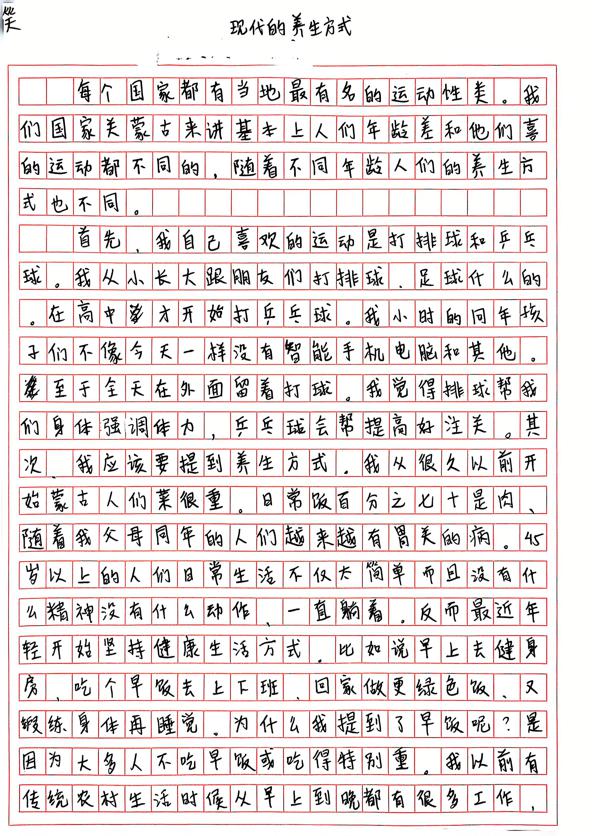 现代的养生方式
每个国家都有当地最有名的运动性类。我
们国家关蒙古来讲基本上人们年龄差和他们喜
的运动都不同的，随着不同年龄人们的养生方
式也不同。
首先、我自己喜欢的运动是打排球和乒乓
球。我从小长大跟朋友们打排球、足球什么的
。在高中才开始打乒乓球。我小时的同年孩
子们不像今天一样没有智能手机电脑和其他。
至于全天在外面留着打球。我觉得排球帮我
们身体强调体力，乒乓球会帮提高好注关。其
次、我应该要提到养生方式。我从很久以前开
始蒙古人们菜很重。日常饭百分之七十是肉、
随着我父母同年的人们越来越有胃关的病。45
岁以上的人们日常生活不仅太简单而且没有什
么精神没有什么动作、一直躺着。反而最近年
轻开始坚持健康生活方式。比如说早上去健身
房、吃个早饭去上下班、回家做更绿色饭、又
锻练身体再睡觉。为什么我提到了早饭呢？是
因为大多人不吃早饭或吃得特别重。我以前有
传统农村生活时候从早上到晚都有很多工作，